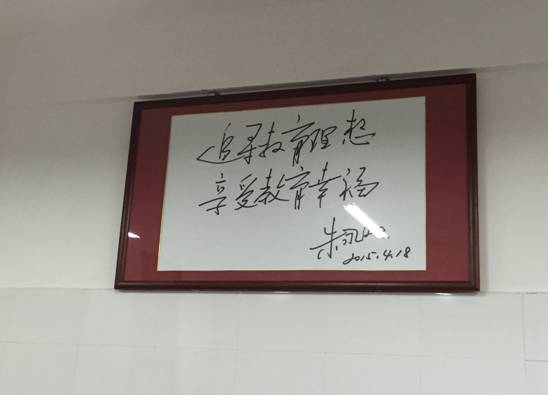 追寻教育理想
享受教育幸福
朱永新
2015.4.18